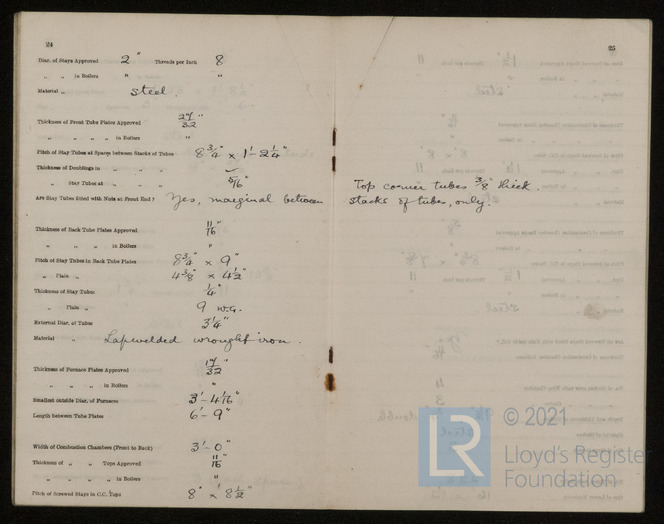 24
Diar. of Stays Approved 2" Threads per Inch 8
" " in Boilers " "
Material " steel
Thickness of Front Tube Plates Approved 27/32"
" " " " in Boilers "
Pitch of Stay Tubes at Spaces between Stacks of Tubes 8 3/4" x 1'-2 1/4"
Thickness of Doublings in " "
" Stay Tubes at " " 5/16"
Are Stay Tubes fitted with Nuts at Front End? Yes, marginal between
Thickness of Back Tube Plates Approved 11/16"
" " " in Boilers "
Pitch of Stay Tubes in Back Tube Plates 8 3/4" x 9"
" Plain " 4 3/8" x 4 1/2"
Thickness of Stay Tubes 1/4"
" Plain " 9 W.G.
External Diar. of Tubes 3 1/4"
Material " Lapwelded wrought iron.
Thickness of Furnace Plates Approved 17/32"
" " " in Boilers "
Smallest outside Diar. of Furnaces 3'-4 1/16"
Length between Tube Plates 6'-9"
Width of Combustion Chambers (Front to Back) 3'-0"
Thickness of " " Tops Approved 11/16"
" " " " in Boilers "
Pitch of Screwed Stays in C.C. Tops 8" x 8 1/2"
25
Top corner tubes 3/8" thick.
stacks of tubes, only.
LR © 2021
Lloyd's Register
Foundation